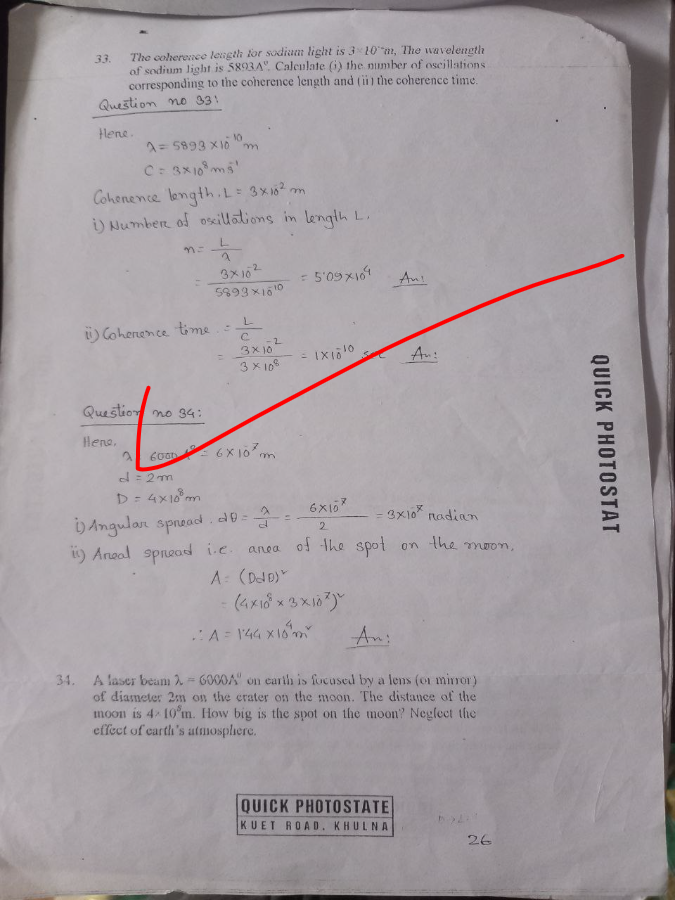 33. The coherence length for sodium light is 3×10⁻²m, The wavelength
of sodium light is 5893A⁰. Calculate (i) the number of oscillations
corresponding to the coherence length and (ii) the coherence time.
Question no 33:
Here,
λ = 5893 ×10⁻¹⁰ m
C = 3×10⁸ ms⁻¹
Coherence length, L = 3×10⁻² m
i) Number of oscillations in length L,
n = L/λ
= 3×10⁻² / 5893×10⁻¹⁰ = 5.09×10⁴ Ans
ii) Coherence time = L/C
= 3×10⁻² / 3×10⁸ = 1×10⁻¹⁰ sec Ans
Question no 34:
Here,
λ 6000 A⁰ = 6×10⁻⁷ m
d = 2m
D = 4×10⁸ m
i) Angular spread, dθ = λ/d = 6×10⁻⁷ / 2 = 3×10⁻⁷ radian
ii) Areal spread i.e. area of the spot on the moon,
A = (Ddθ)²
= (4×10⁸ × 3×10⁻⁷)²
∴ A = 1.44 ×10⁴ m² Ans
34. A laser beam λ = 6000A⁰ on earth is focused by a lens (or mirror)
of diameter 2m on the crater on the moon. The distance of the
moon is 4×10⁸m. How big is the spot on the moon? Neglect the
effect of earth's atmosphere.
QUICK PHOTOSTAT
QUICK PHOTOSTATE
KUET ROAD, KHULNA
26